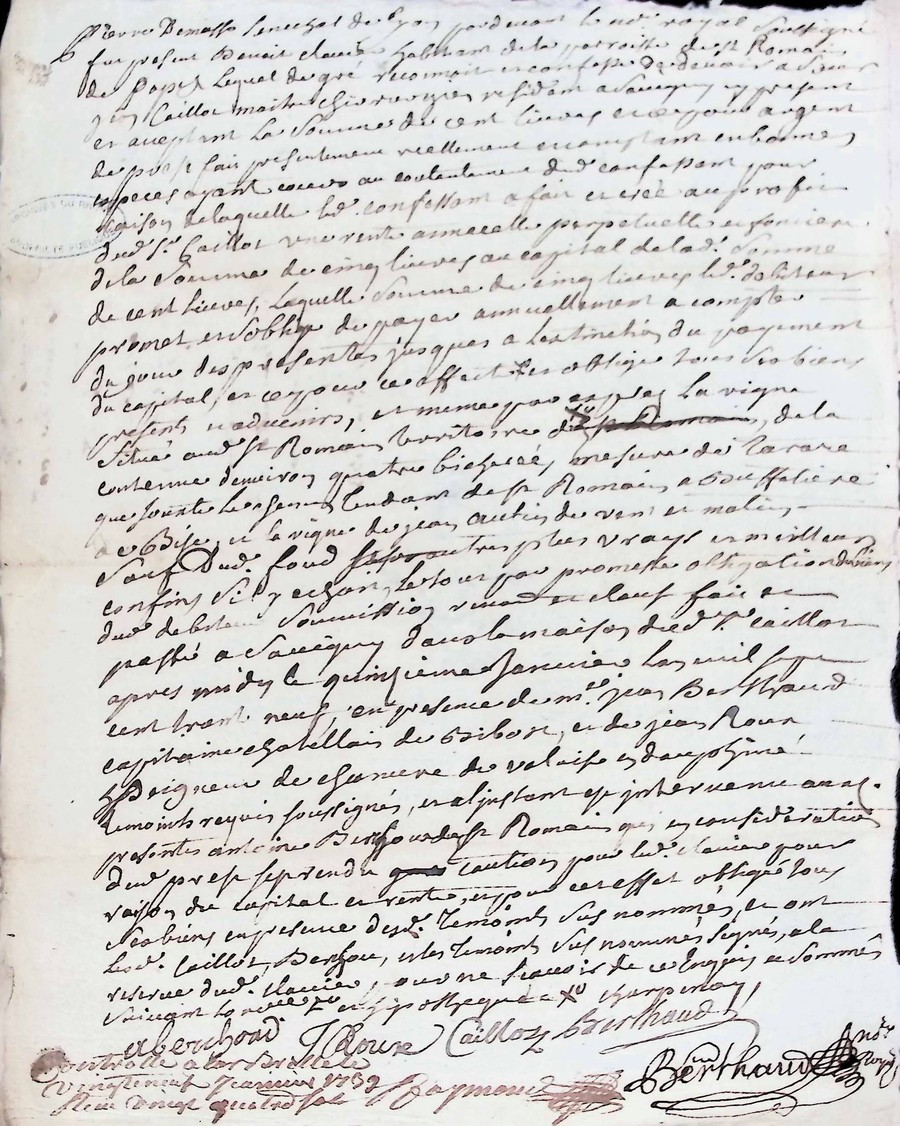 Pierre Demasso Senechal de Lyon pardevant le no.re royal soussigné
fut present Benoit Clavier habitant de la parroisse de St Romain
de Popey Lequel de gré reconnoit et confesse debvoir a Sieur
Caillot maitre chirurgien residant a Savigny cy present
et acceptant la Somme de cent livres et ce pour argent
de prest fait presentement reellement et comptant en bonnes
especes ayant cours au contentement dud. confessant pour
raison de laquelle led. confessant a fait et créé au profit
dud. Sr. Caillot une rente annuelle perpetuelle et fonciere
de la Somme de cinq livres au capital de lad. Somme
de cent livres, laquelle Somme de cinq livres led. debiteur
promet et s'oblige de payer annuellement a compter
du jour des presentes jusques a lextinction du payement
du capital, et ce pour ce effect et oblige tous ses biens
presents et advenirs, et meme par expres la vigne
Situé aud. St Romain territoire de St Romain, de la
contenue denviron quatre bicherées, mesure de Tarare
que jouxte le chemin tendant de St Romain a
a de Bise, et la vigne de jean de vent et matin
Sauf dud. fond autres plus vrays et meilleurs
confins Si y echoit, le tout par promesse obligation de biens
dud. debiteur Soumission renon. et clause fait et
passé a Savigny dans la maison dud. Sr. Caillot
apres midy le quinzieme Janvier lan mil sept
cent trent neuf, en presence de me. jean Berthaud
capitaine chatellain de Bibost, et de jean Roux
Peigneur de chanvre de valoise en dauphiné
temoints requis soussignés, et a linstant est intervenu aux
presentes antoine Berchoud de St Romain qui en consideration
dud. prest se rend caution pour led. Clavier pour
raison du capital et rente, et pour cet effet oblige tous
ses biens en presence desd. temoints sus nommés, et ont
lesd. Caillot, Berchou, et les temoints sus nommés signés, a la
reserve dud. Clavier, pour ne scavoir de ce enquis et sommé
Suivant lord.ce et hipotheque
aberchoud JRoux Caillot Berthaud
Controllé a larbresle le
vingt neuf Janvier 1739 Raymond
Reçu vingt quatre sols
Berthaud No.re Roy.